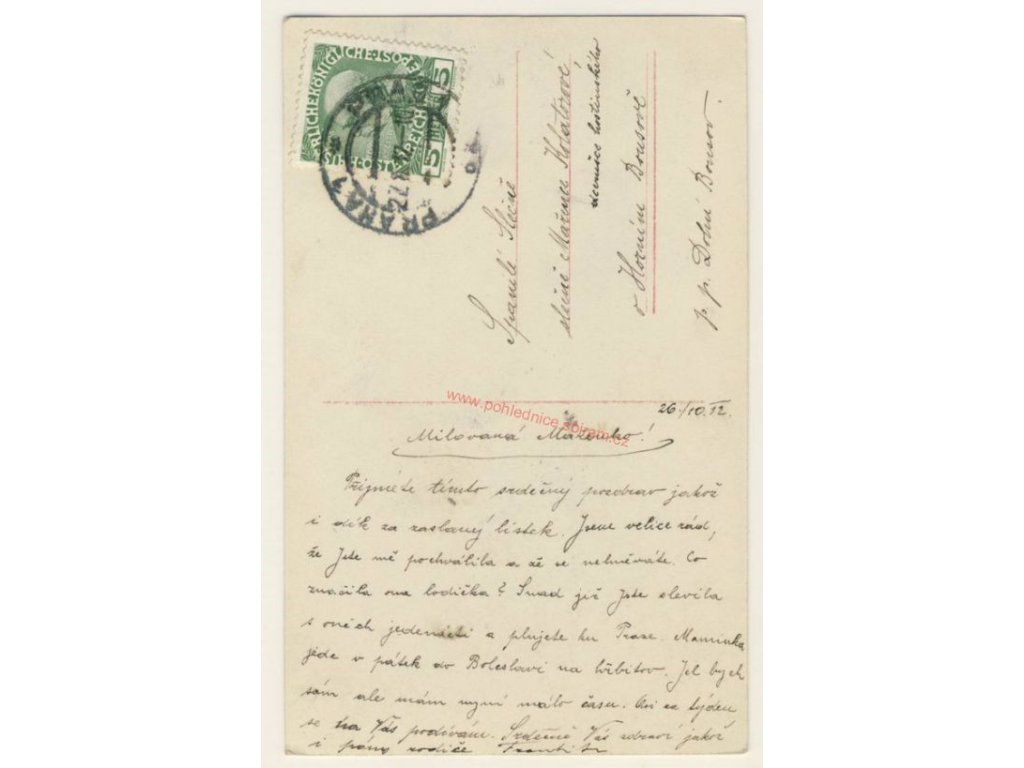 KAISERLICHE KÖNIGLICHE ÖSTERREICHISCHE POST
5 5
PRAHA 1
27
Spanilé Slečně
slečně Mařence Kolátorové
dcerušce hostinského
v Horním Bousově
p. p. Dolní Bousov.
www.pohlednice.sbiram.cz
26./10. 12.
Milovaná Mařenko!
Přijměte tímto srdečný pozdrav jakož
i dík za zaslaný lístek. Jsem velice rád,
že jste mě pochválila a že se nehněváte. Co
značila ona lodička? Snad již jste slevila
s oněch jedenácti a plujete ku Praze. Maminka
jede v pátek do Boleslavi na hřbitov. Jel bych
sám ale mám nyní málo času. Asi za týden
se na Vás podívám. Srdečně Vás zdraví jakož
i pány rodiče Frantík